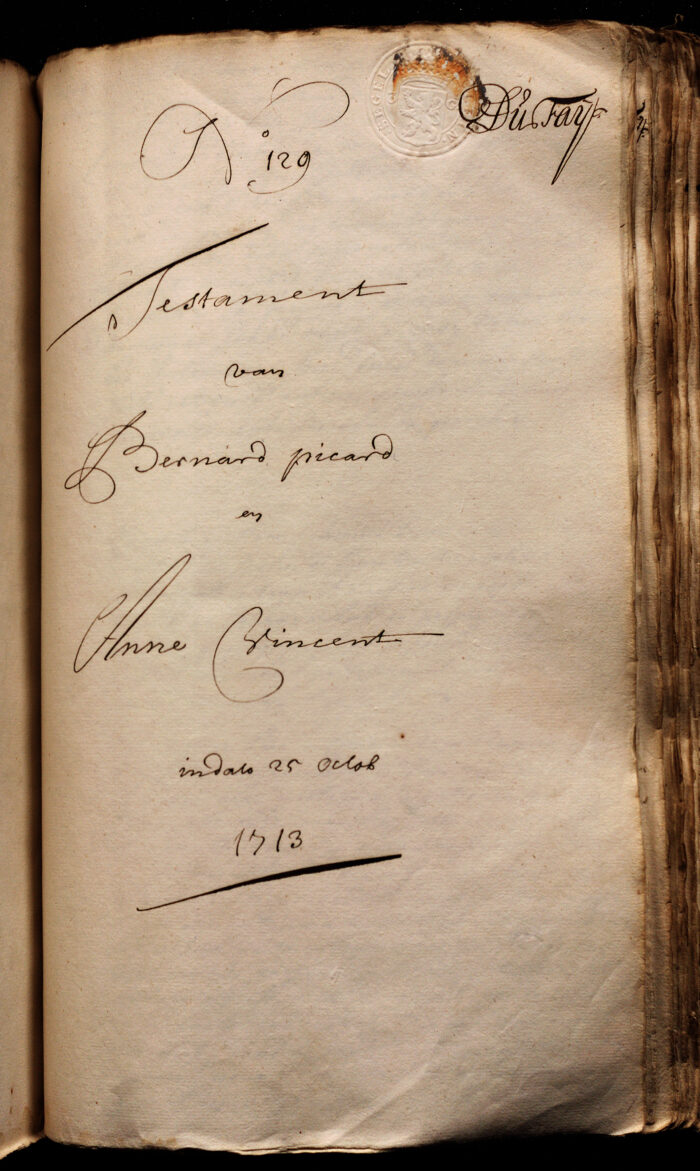 Du Fay
N° 129
Testament
van
Bernard picard
en
Anne Vincent
in dato 25 octob
1713